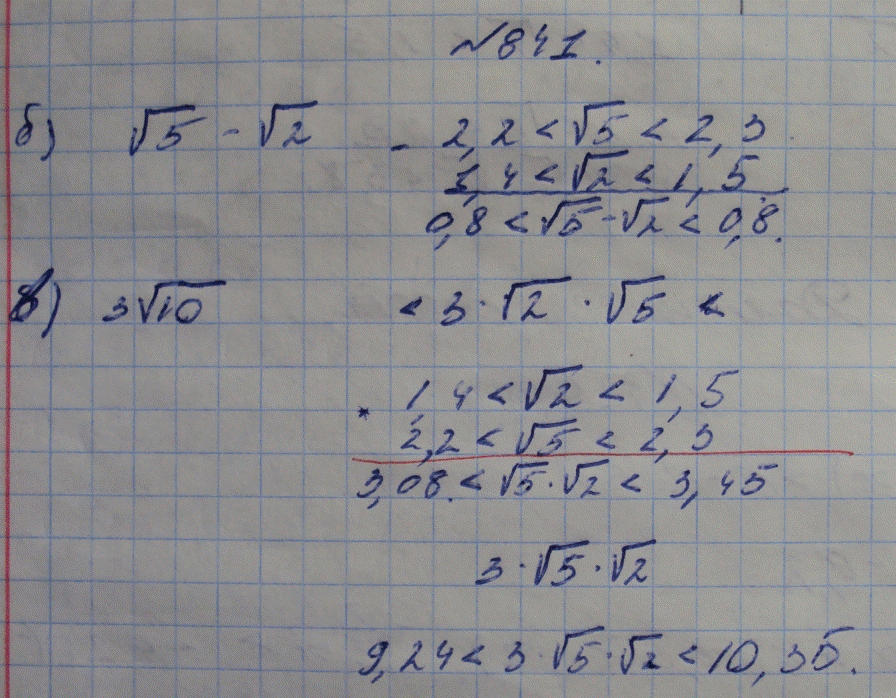 №841.
б) √5 - √2 - 2,2 < √5 < 2,3
1,4 < √2 < 1,5
0,8 < √5 - √2 < 0,8.
в) 3√10 < 3 · √2 · √5 <
* 1,4 < √2 < 1,5
2,2 < √5 < 2,3
3,08 < √5 · √2 < 3,45
3 · √5 · √2
9,24 < 3 · √5 · √2 < 10,35.